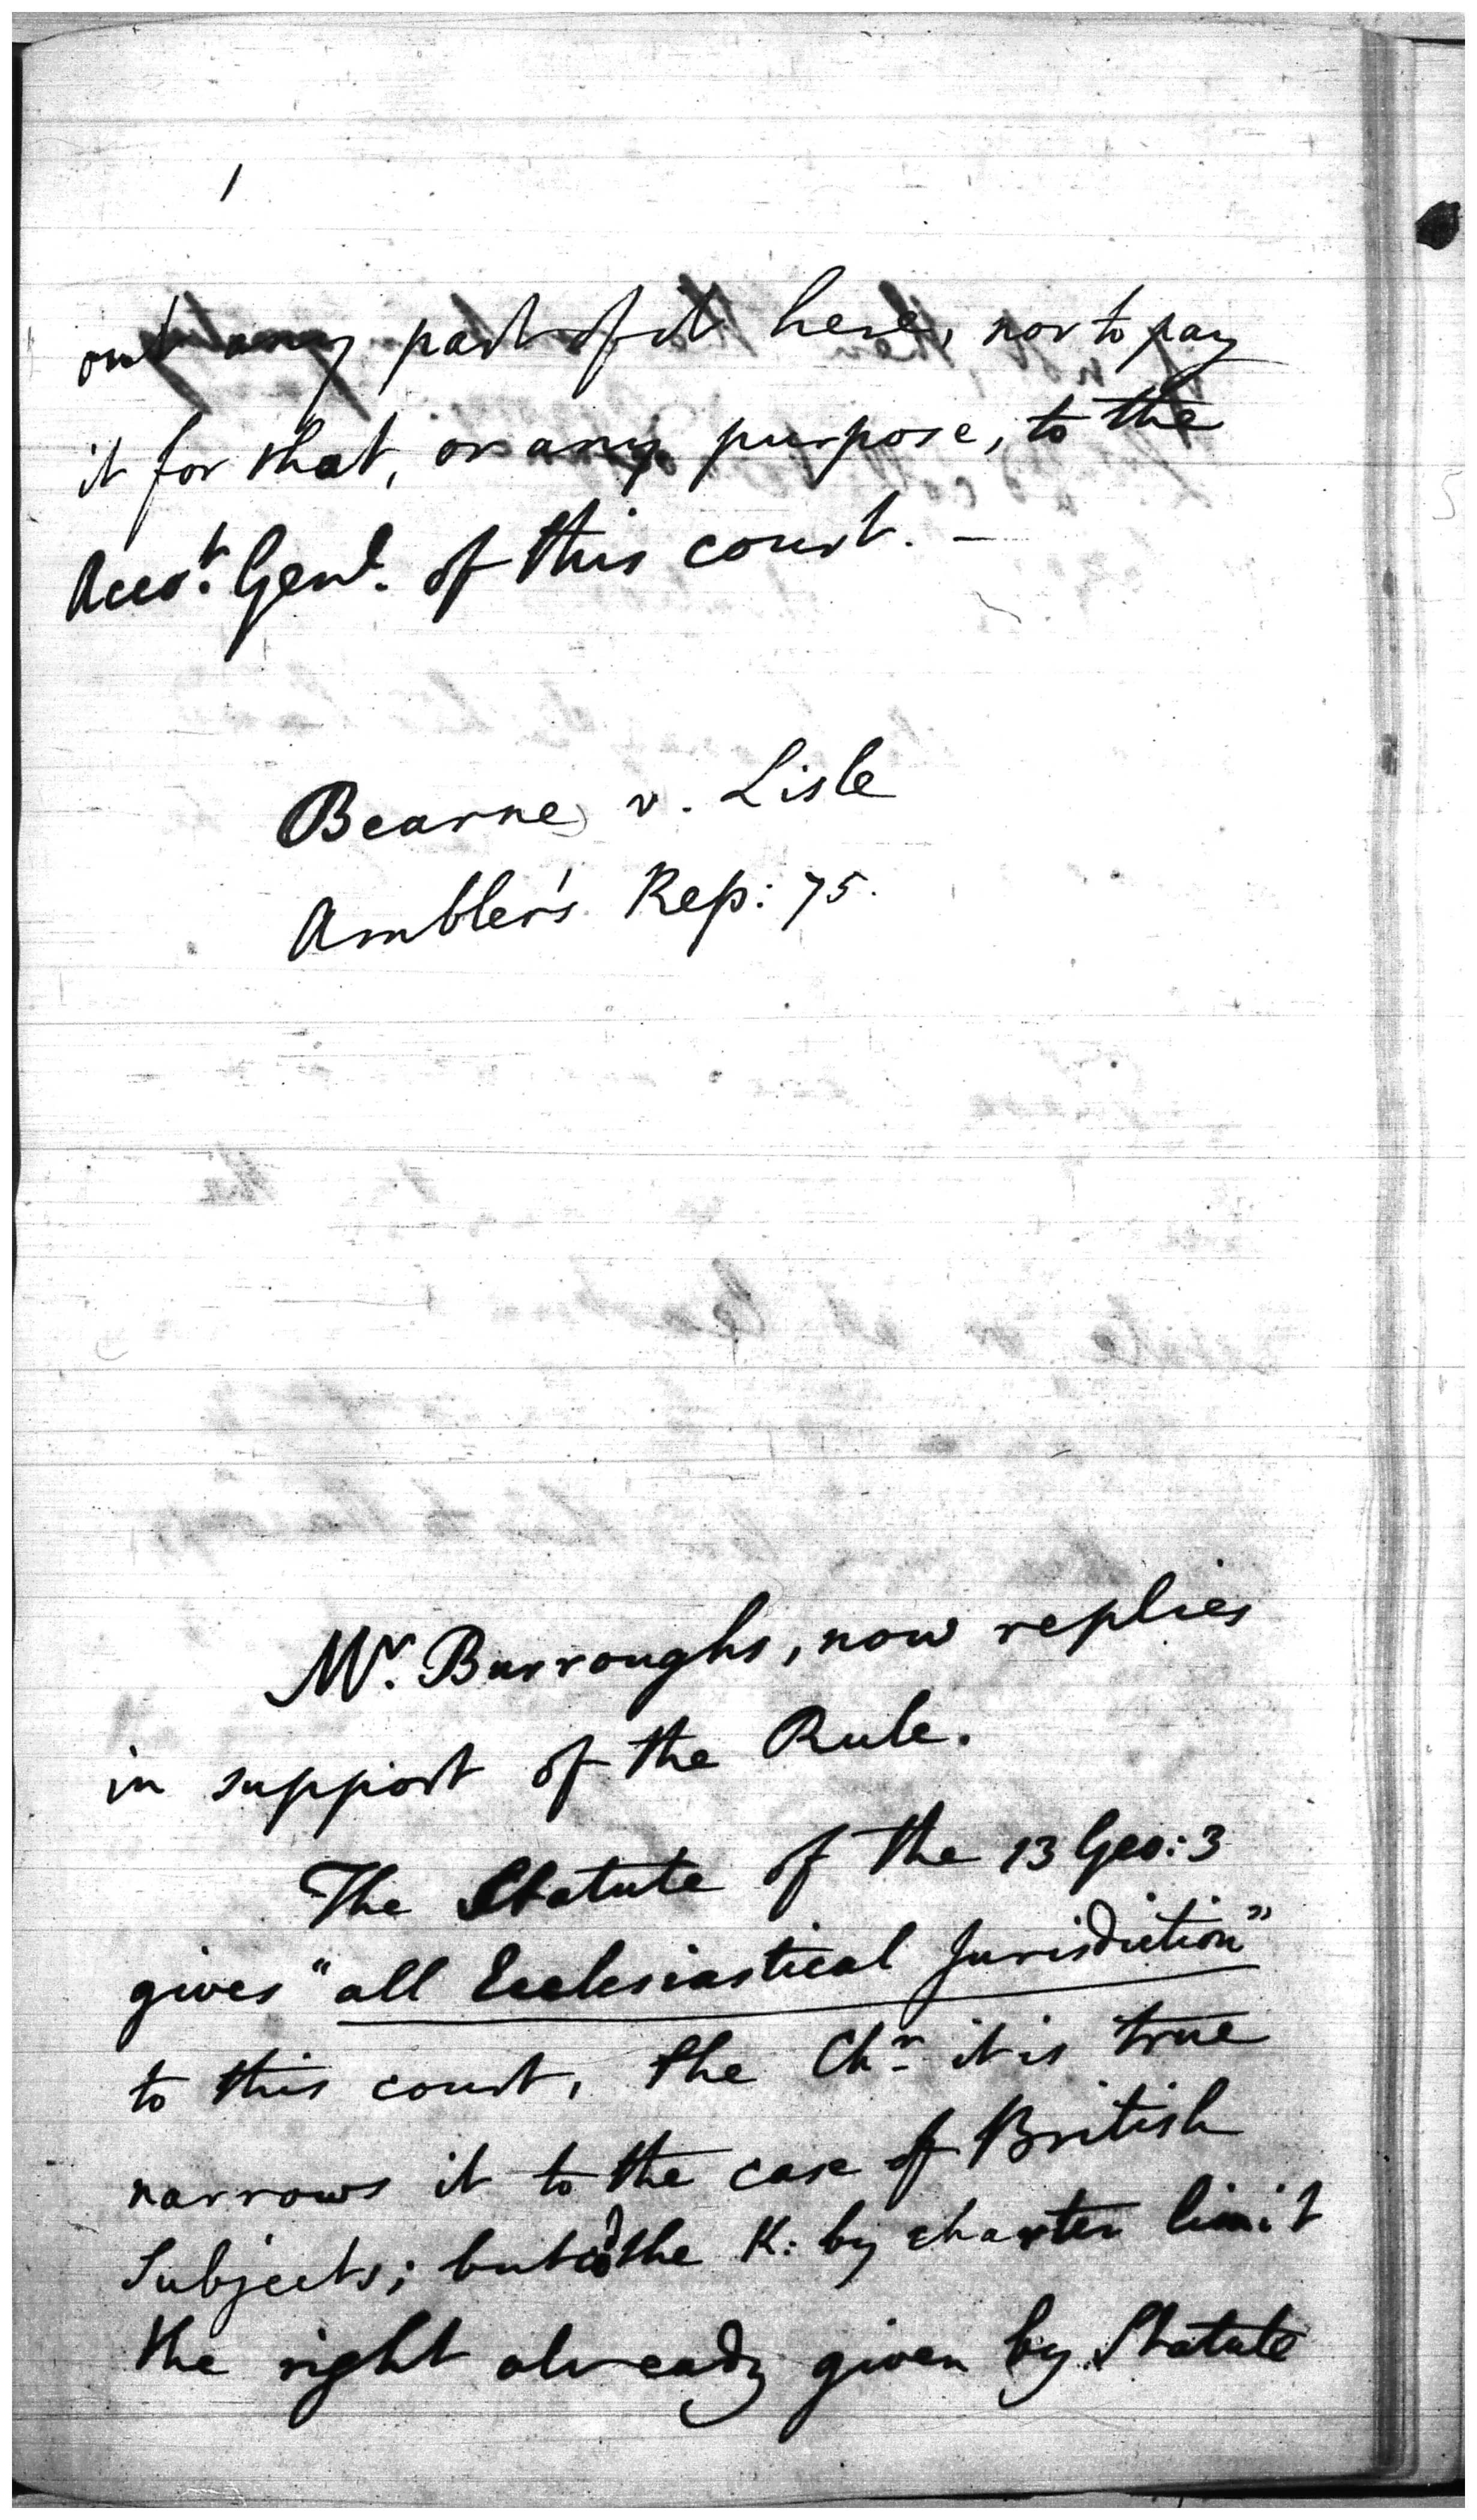 out any part of it here, nor to pay
it for that, or any purpose, to the
Acco.t Genl. of this court. —
Bearne v. Lisle
Ambler's Rep: 75.
Mr. Burroughs, now replies
in support of the Rule.
The Statute of the 13 Geo: 3
gives "all Ecclesiastical Jurisdiction"
to this court, the Chr. it is true
narrows it to the case of British
Subjects; but cd the K: by charter limit
the right already given by Statute